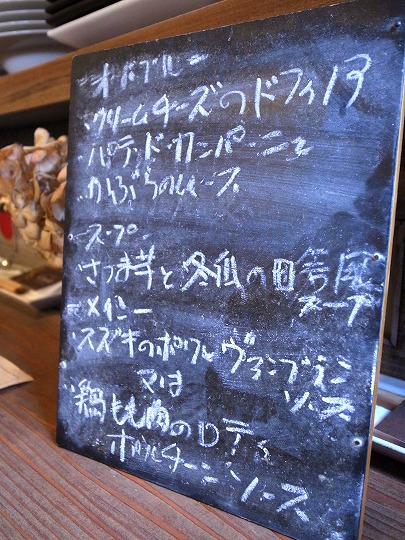 オードブル
・クリームチーズのドフィノア
・パテ・ド・カンパーニュ
・かぶらのムース
スープ
さつま芋と冬瓜の田舎風
スープ
メイン
・スズキのポワレ ヴァンブラン
ソース
又は
・鶏もも肉のロティ
ポルチーニソース